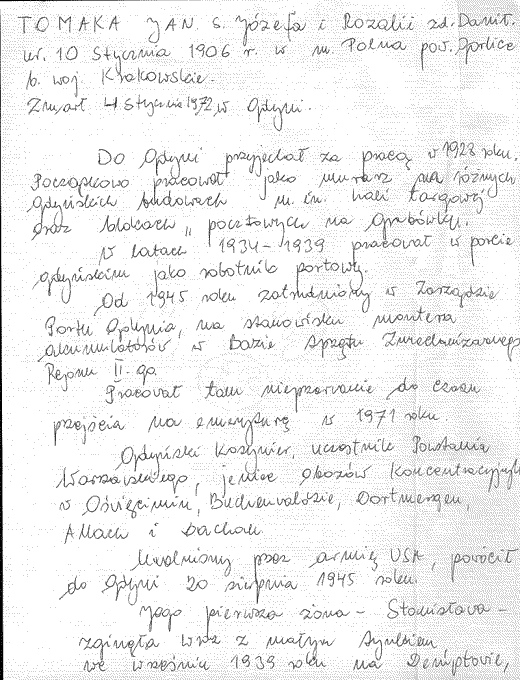 TOMAKA JAN. s. Józefa i Rozalii zd. Damit.
ur. 10 Stycznia 1906 r. w m. Polna pow. Gorlice
b. woj. Krakowskie.
Zmarł 4 stycznia 1972, w Gdyni.
Do Gdyni przyjechał za pracą w 1928 roku.
Początkowo pracował jako murarz na różnych
gdyńskich budowach m. in. hali targowej
oraz blokach „pocztowych na Grabówku.
W latach 1934-1939 pracował w porcie
gdyńskim jako robotnik portowy.
Od 1945 roku zatrudniony w Zarządzie
Portu Gdynia, na stanowisku montera
akumulatorów w Bazie Sprzętu Zmechanizowanego
Rejonu II-go.
Pracował tam nieprzerwanie do czasu
przejścia na emeryturę w 1971 roku
Gdyński Kosynier, uczestnik Powstania
Warszawskiego, jeniec obozów koncentracyjnych
w Oświęcimiu, Buchenwaldzie, Dortmergen,
Allach i Dachau
Uwolniony przez armię USA, powrócił
do Gdyni 20 sierpnia 1945 roku.
Jego pierwsza żona - Stanisława -
zginęła wraz z małym synkiem
we wrześniu 1939 roku na Demptowie,